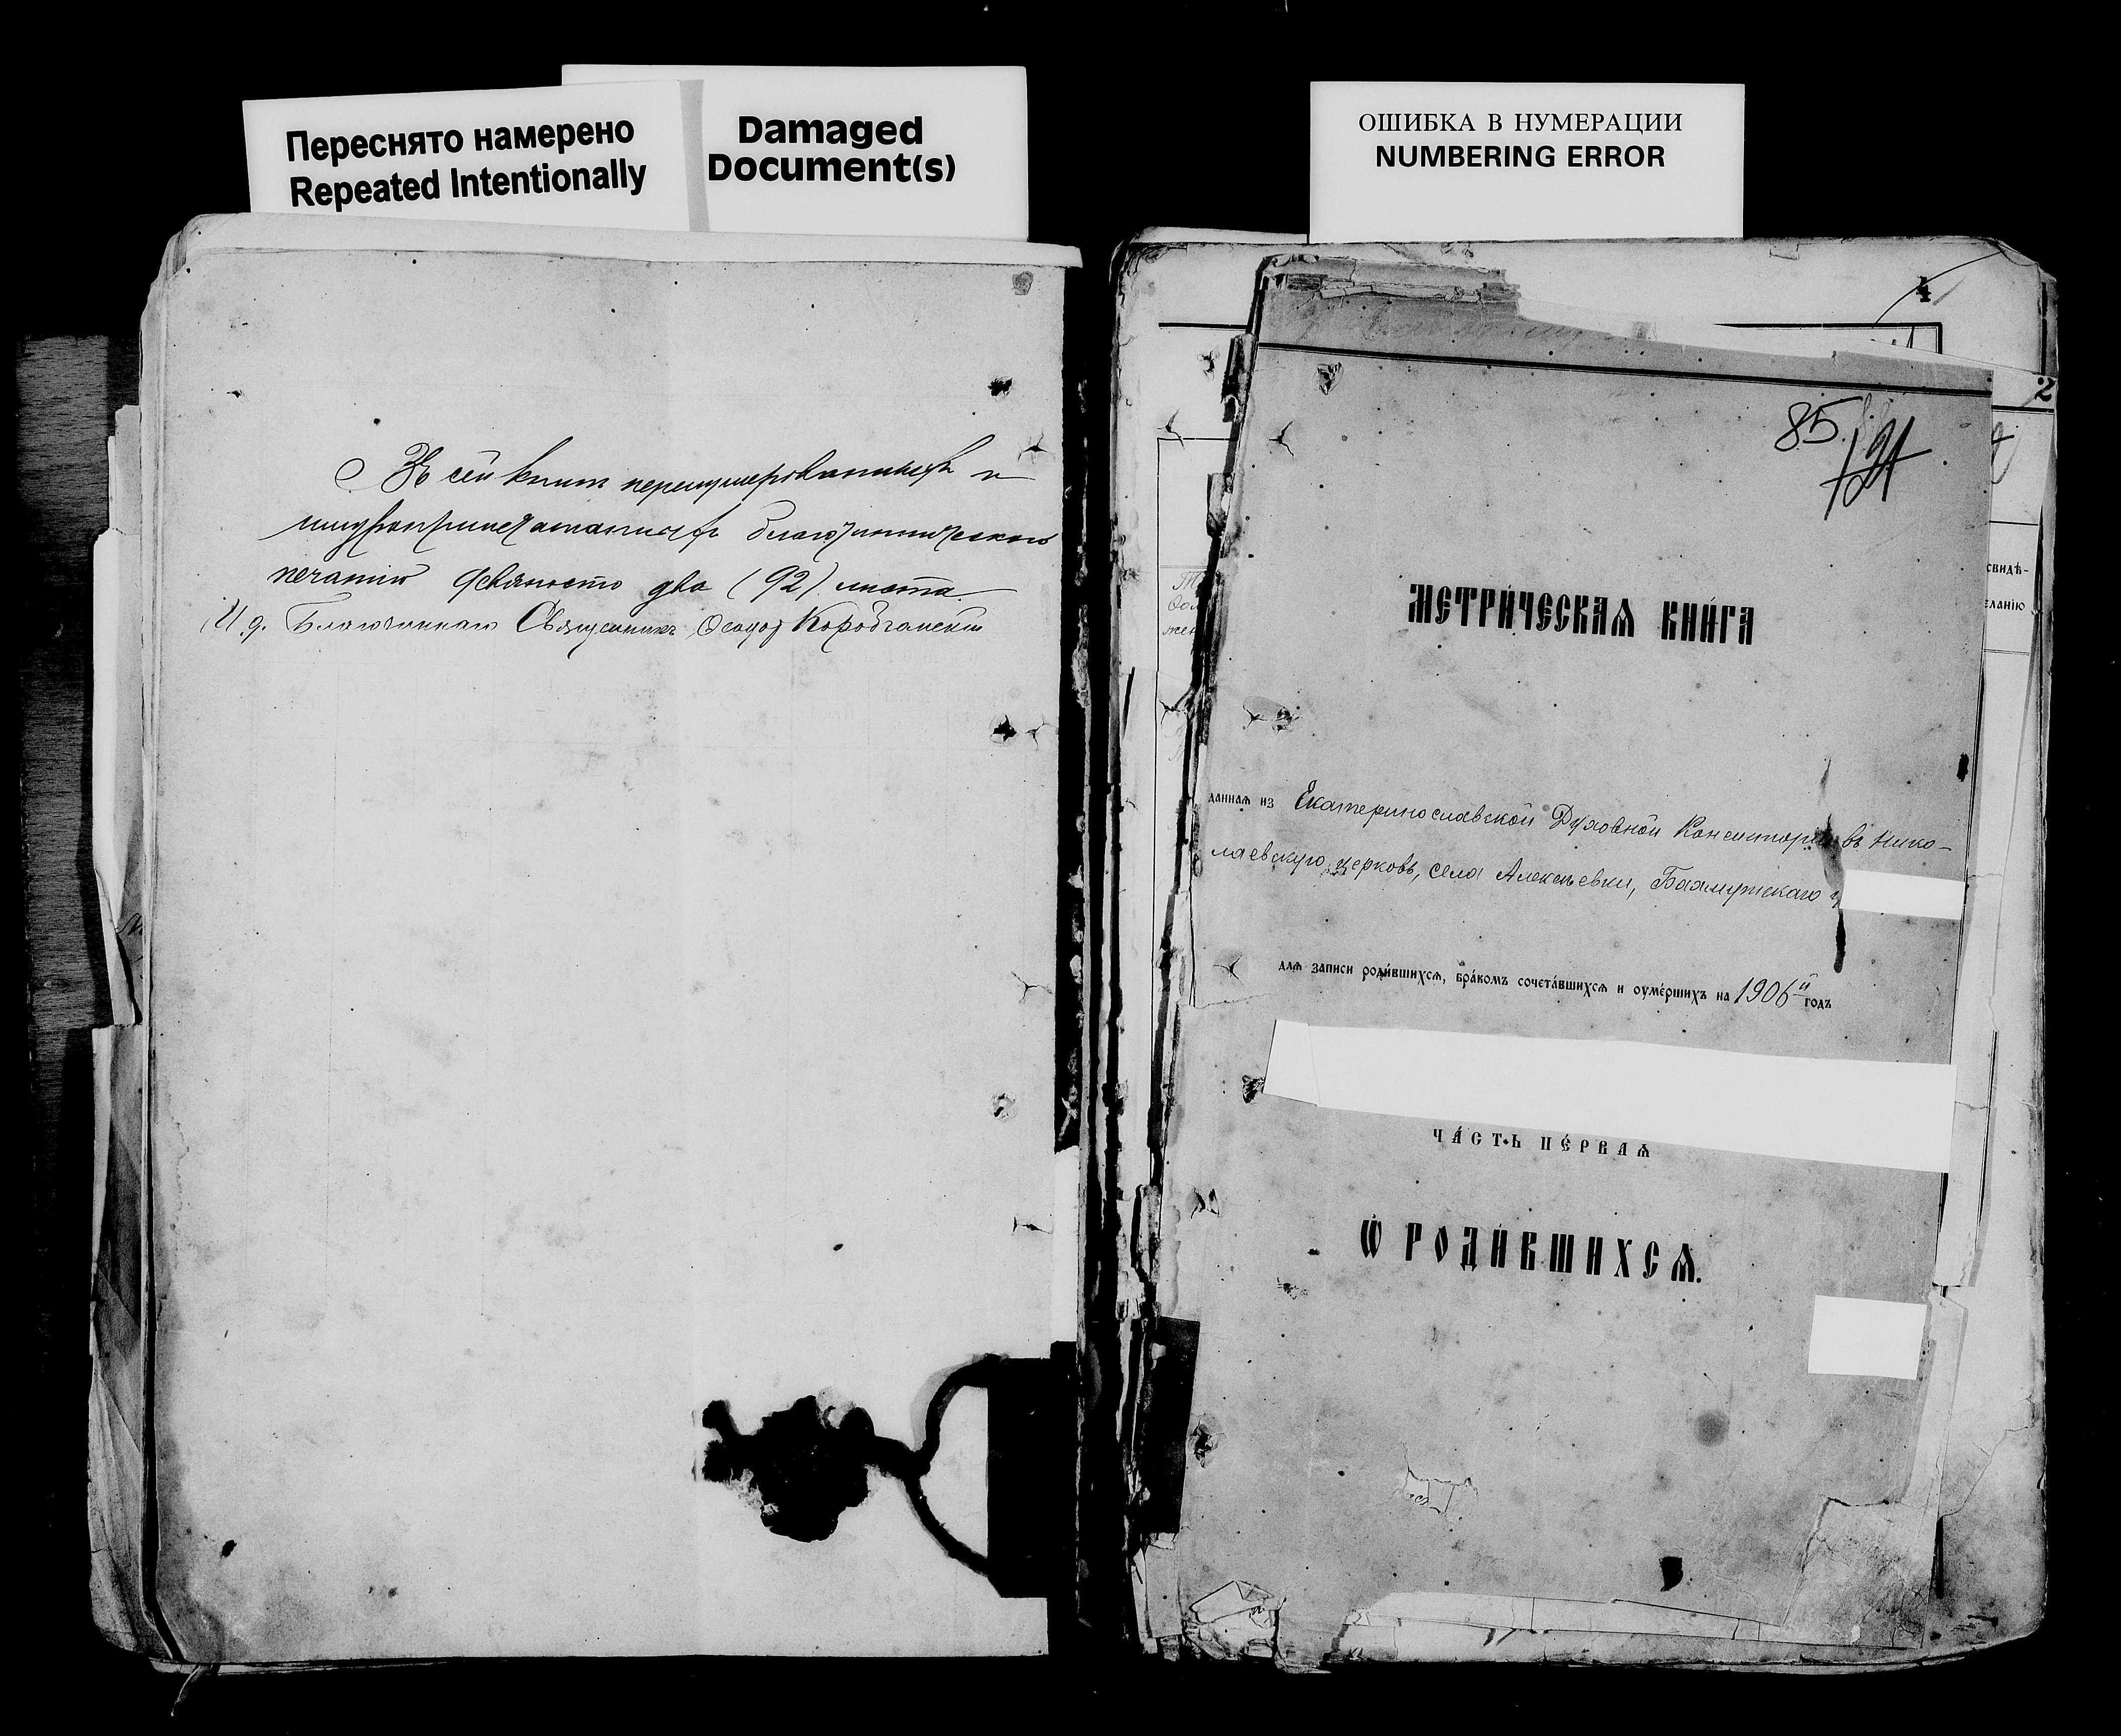 Переснято намерено
Repeated Intentionally
Damaged
Document(s)
ОШИБКА В НУМЕРАЦИИ
NUMBERING ERROR
Въ сей книгѣ перенумерованныхъ и
шнуроприпечатанныхъ благочинническою
печатію девяносто два (92) листа
И. д. Благочиннаго Священникъ Ѳеодоръ
4
2
85
124
МЕТРИ́ЧЕСКАѦ КНИ́ГА
даннаѧ из Екатеринославской Духовной Консисторіи въ Нико-
лаевскую церковь, села Алексѣевки, Бахмутскаго у
длѧ записи роди́вшихсѧ, бра́комъ сочета́вшихсѧ и оуме́ршихъ на 1906й годъ
ЧА́СТЬ ПЕ́РВАѦ
Ѡ РОДИ́ВШИХСѦ.
свидѣ-
еланію